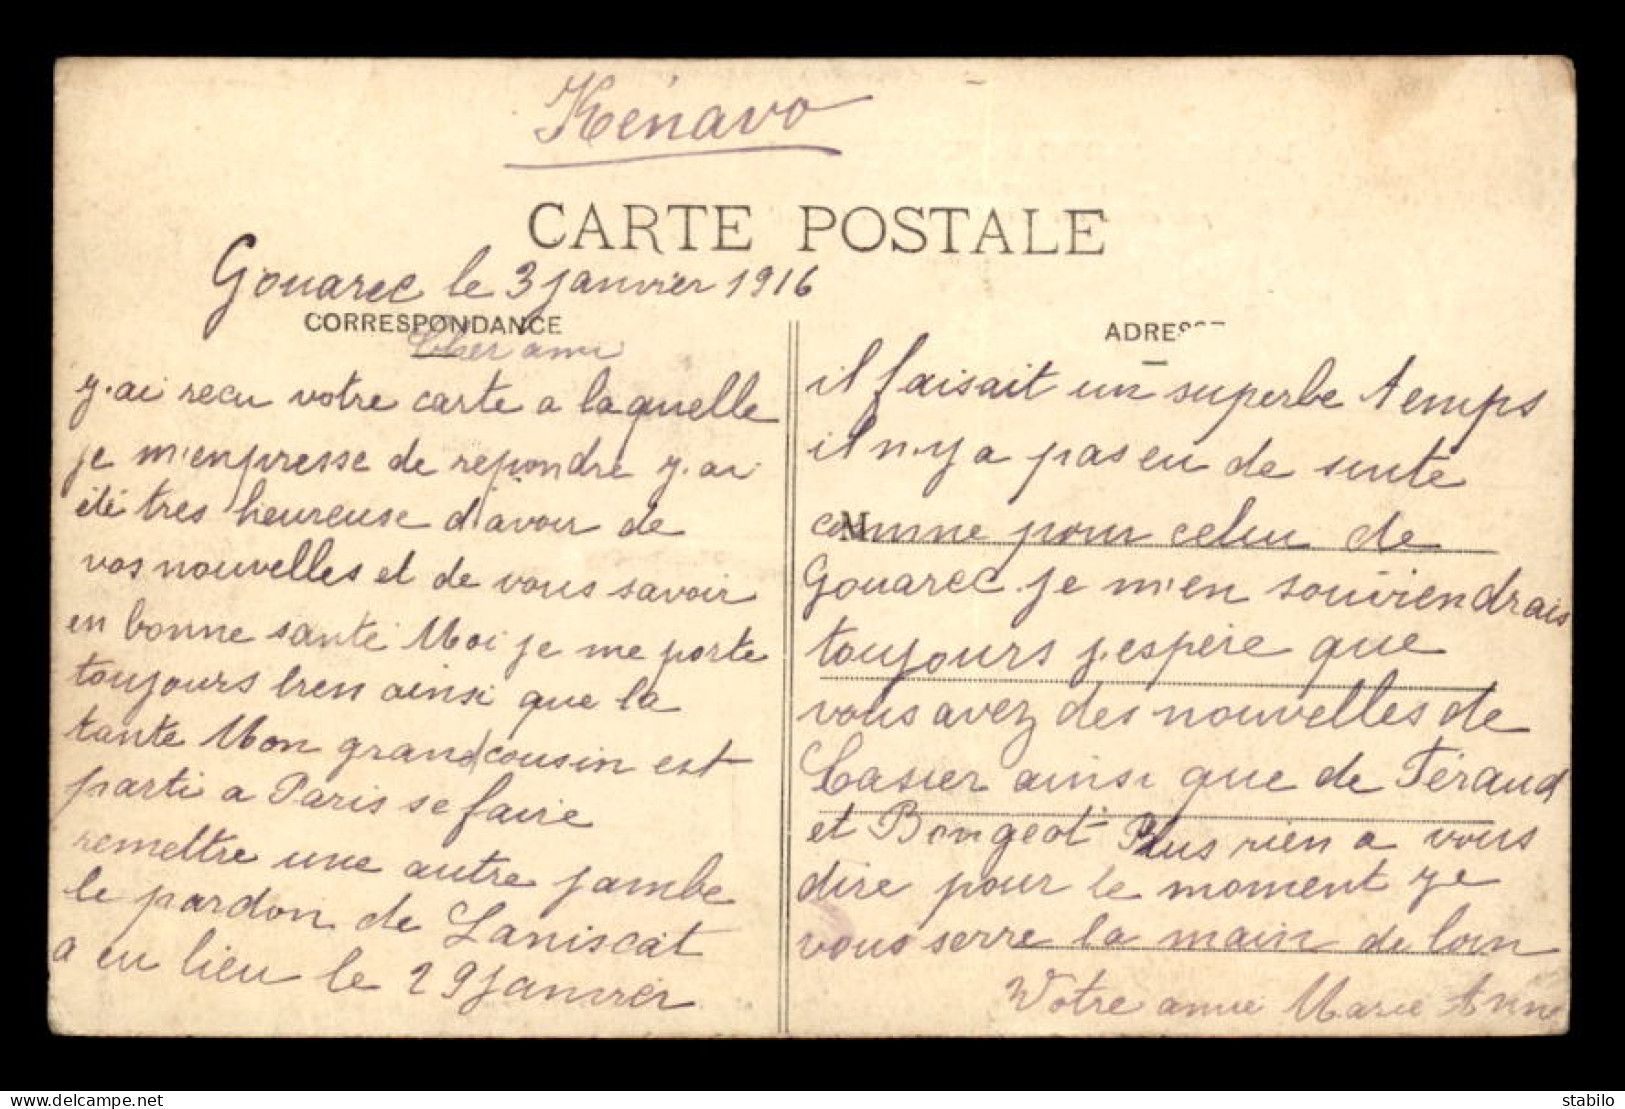 Kénavo
CARTE POSTALE
Gouarec le 3 janvier 1916
CORRESPONDANCE
Cher ami
y.ai recu votre carte a laquelle
je m'enpresse de repondre y.ai
été tres heureuse d'avoir de
vos nouvelles et de vous savoir
en bonne santé Moi je me porte
toujours bien ainsi que la
tante Mon grand cousin est
parti a Paris se faire
remettre une autre jambe
le pardon de Laniscat
a eu lieu le 29 janvier
ADRESSE
il faisait un superbe temps
il n.y a pas eu de suite
M
comme pour celui de
Gouarec je m'en souviendrais
toujours j.espère que
vous avez des nouvelles de
Casier ainsi que de Féraud
et Bongeot Plus rien a vous
dire pour le moment je
vous serre la main de loin
Votre amie Marie Anne
stabilo